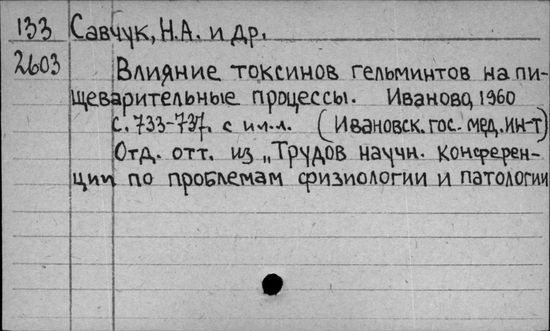 133 Савчук, Н.А. и др.
2603 Влияние токсинов гельминтов на пи-
щеварительные процессы. Иваново, 1960
с. 733-737. с илл. (Ивановск. гос. мед. ин-т)
Отд. отт. из „Трудов научн. конферен-
ции по проблемам физиологии и патологии